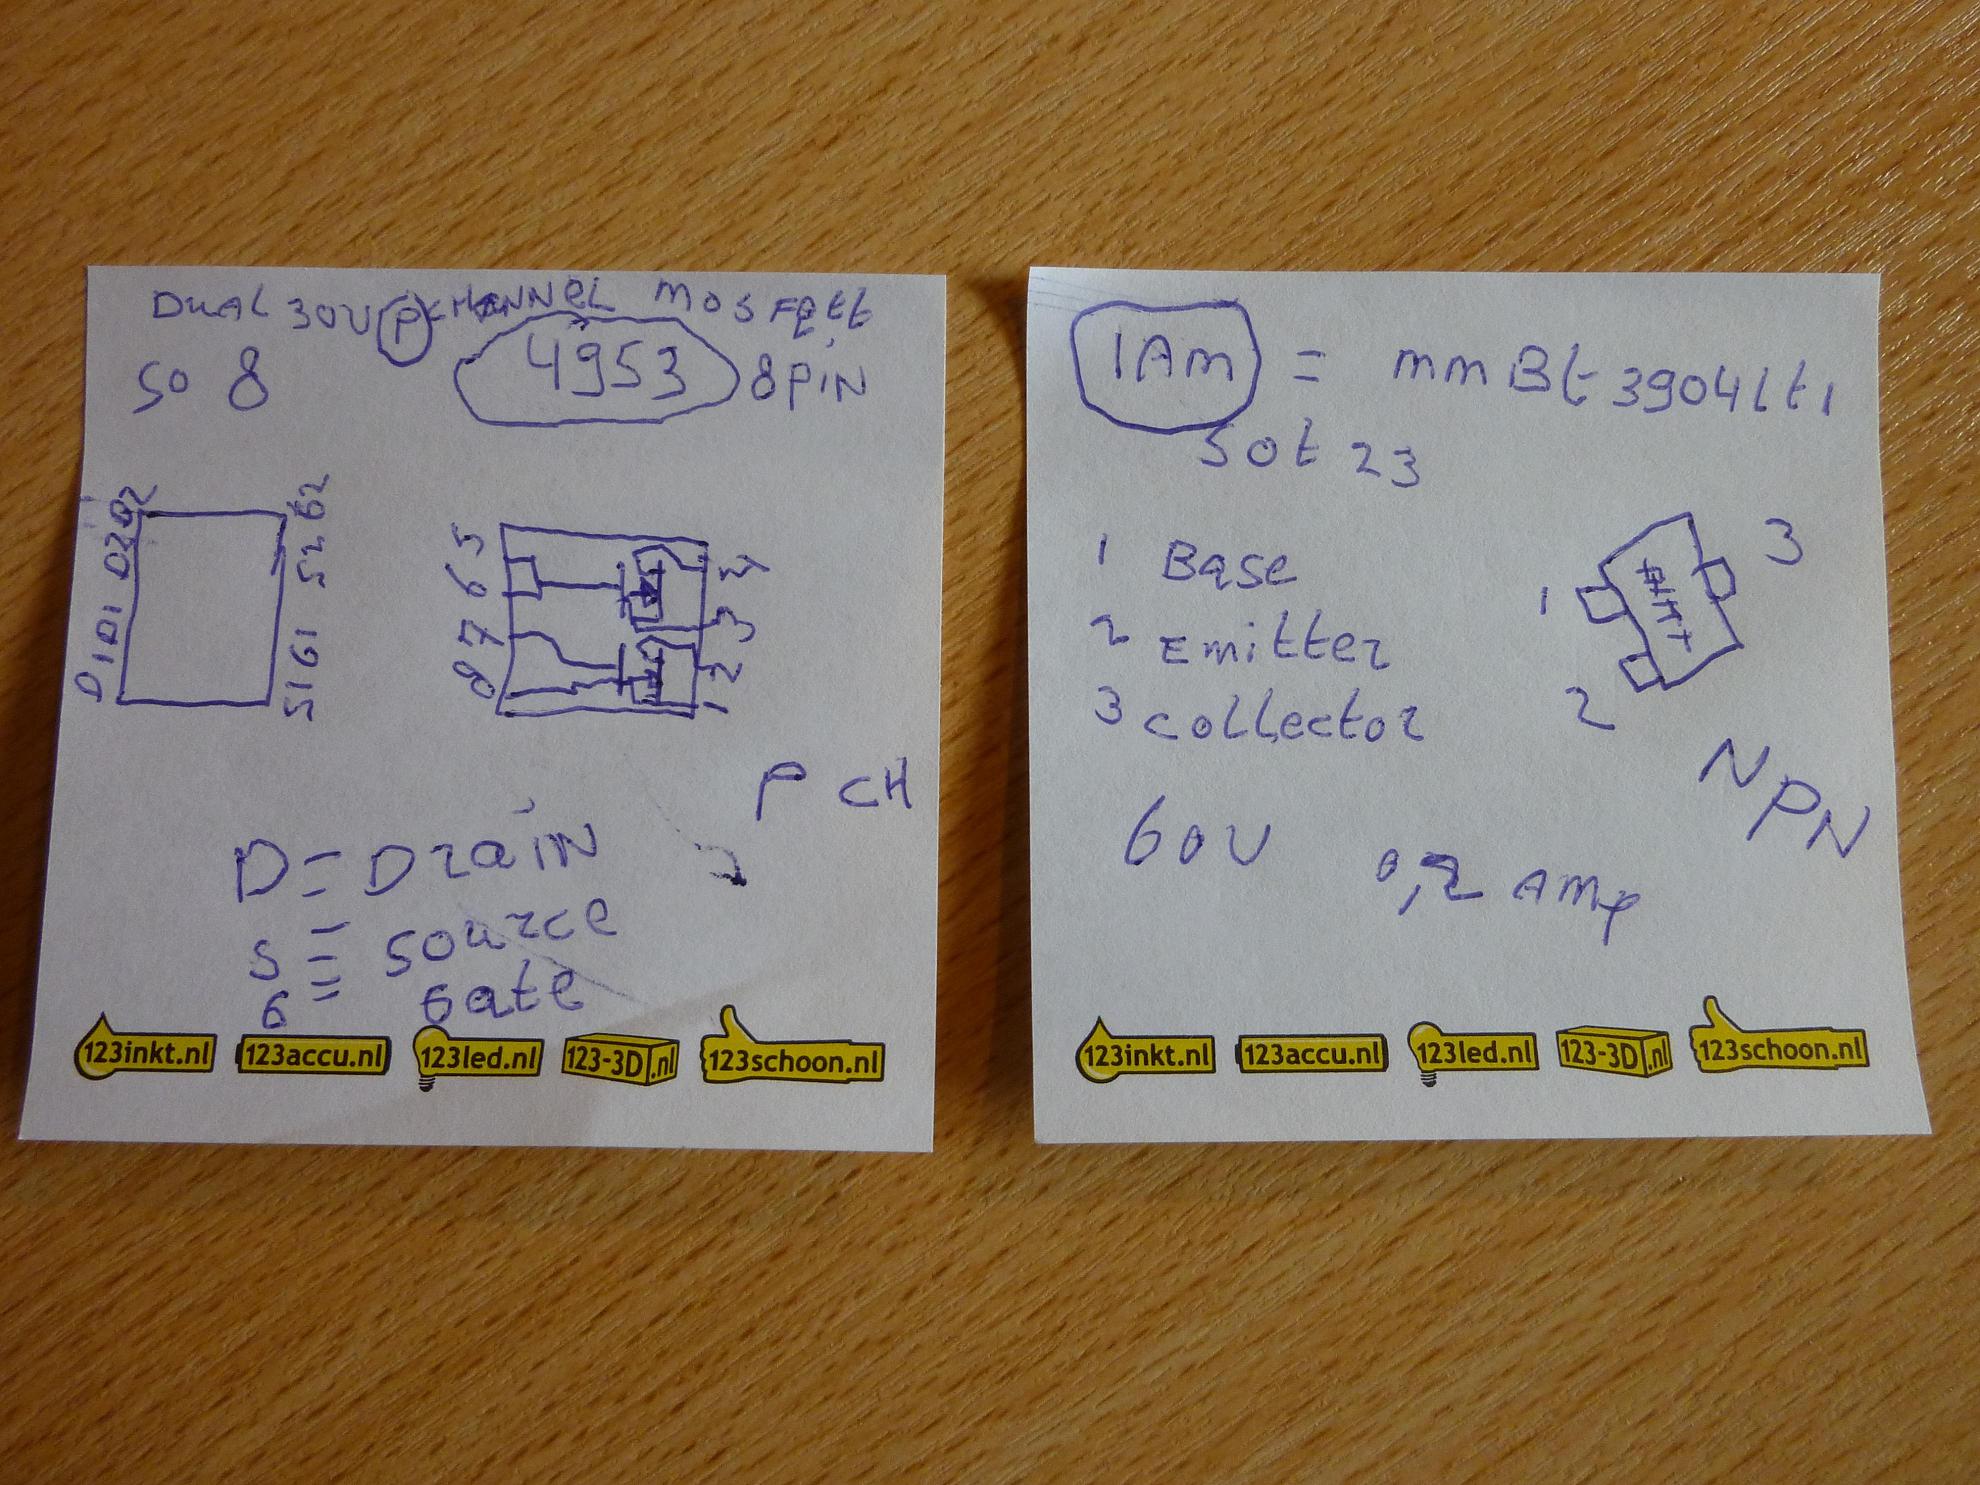 DUAL 30V P CHANNEL MOSFEtt
SO 8 4953 8PiN
D1 D1 D2 D2
S1 G1 S2 G2
5 6 7 8
4 3 2 1
P CH
D = Drain
S = Source
G = Gate
123inkt.nl 123accu.nl 123led.nl 123-3D.nl 123schoon.nl
1Am = mmBt3904lt1
Sot 23
1 Base
2 Emitter
3 collector
1 2 3
NPN
60V
0,2 Amp
123inkt.nl 123accu.nl 123led.nl 123-3D.nl 123schoon.nl